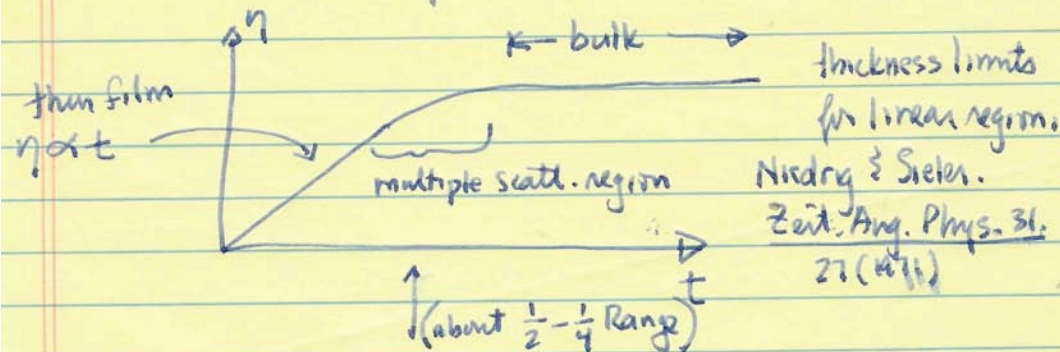 η
← bulk →
thin film
η ∝ t
multiple scatt. region
thickness limits
for linear region.
Niedrig & Sieler.
Zeit. Ang. Phys. 31.
27 (1971)
t
(about 1/2 - 1/4 Range)